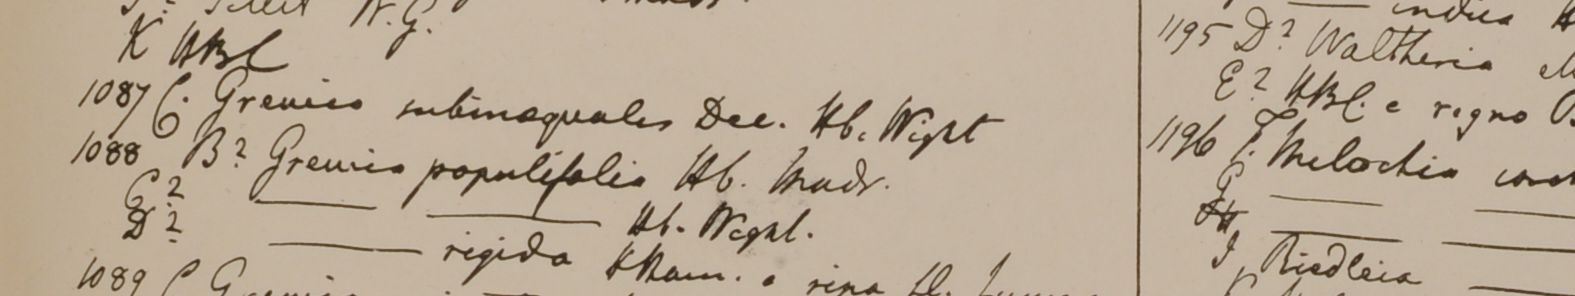 K HBC
1087 C. Grewia subinaequales Dec. Hb. Wight
1088 B? Grewia populifolia Hb. Madr.
C? —— —— Hb. Wight.
D? —— rigida HHam.
1089 C Grewia
indica
1195 D? Waltheria
E? HBC. e regno
1196 Melochia
G —— ——
H —— ——
I Riedleia ——